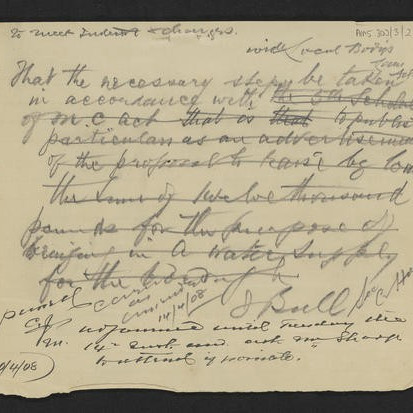 to meet Interest & charges.
AMS 302/3/2
wide Local Bodys
Loans Act
That the necessary steps be taken
in accordance with the 5th Schedule
of M.C act that is that to publish
particulars as an advertisement
of the proposal to raise by loan
the sum of twelve thousand
pounds for the purpose of
bringing in a water supply
for the borough
J Bull
14/4/08
adjourned until Tuesday the
14 inst and ask Mr Sharp
to attend if possible.
/4/08